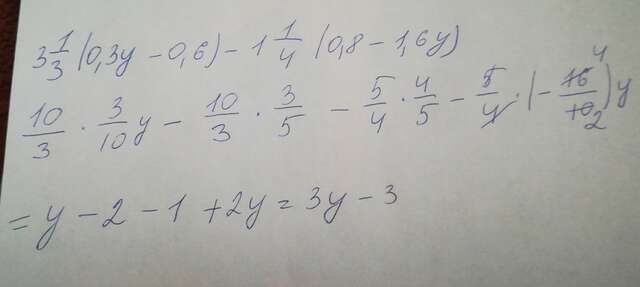 3 1/3 (0,3y − 0,6) − 1 1/4 (0,8 − 1,6y)
10/3 · 3/10 y − 10/3 · 3/5 − 5/4 · 4/5 − 5/4 · (− 16/10) y 4 2
= y − 2 − 1 + 2y = 3y − 3